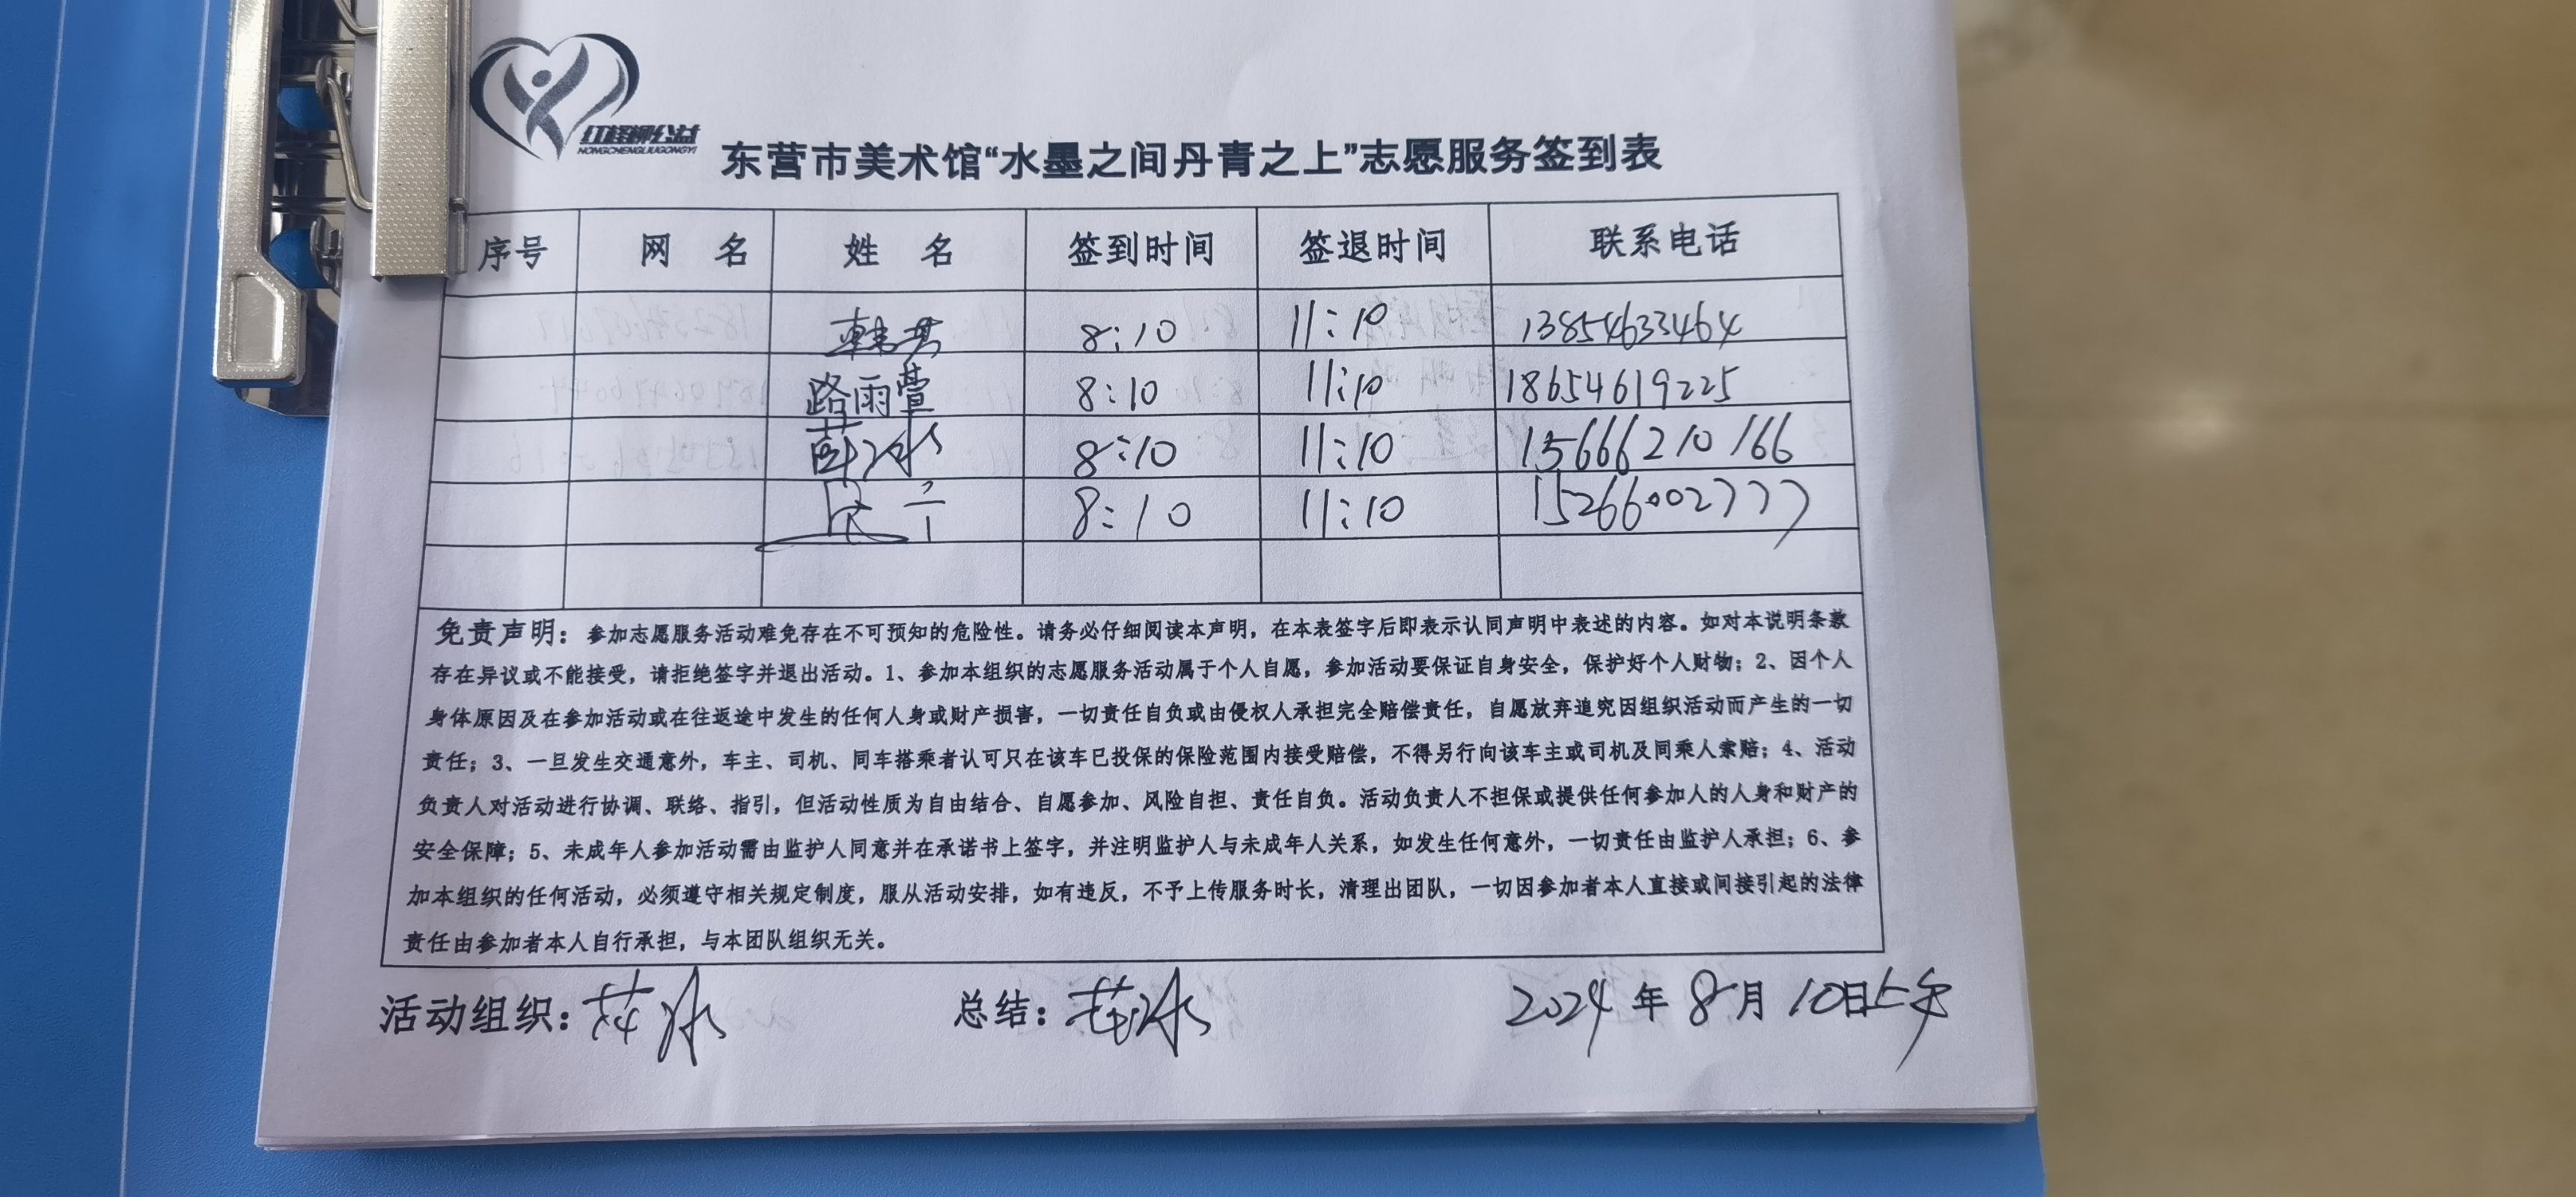 红柽柳公益
HONGCHENGLIUGONGYI
东营市美术馆“水墨之间丹青之上”志愿服务签到表
序号 网 名 姓 名 签到时间 签退时间 联系电话
8:10 11:10 13854633464
路雨萱 8:10 11:10 18654619225
8:10 11:10 15666210166
8:10 11:10 15266002777
免责声明：参加志愿服务活动难免存在不可预知的危险性。请务必仔细阅读本声明，在本表签字后即表示认同声明中表述的内容。如对本说明条款
存在异议或不能接受，请拒绝签字并退出活动。1、参加本组织的志愿服务活动属于个人自愿，参加活动要保证自身安全，保护好个人财物；2、因个人
身体原因及在参加活动或在往返途中发生的任何人身或财产损害，一切责任自负或由侵权人承担完全赔偿责任，自愿放弃追究因组织活动而产生的一切
责任；3、一旦发生交通意外，车主、司机、同车搭乘者认可只在该车已投保的保险范围内接受赔偿，不得另行向该车主或司机及同乘人索赔；4、活动
负责人对活动进行协调、联络、指引，但活动性质为自由结合、自愿参加、风险自担、责任自负。活动负责人不担保或提供任何参加人的人身和财产的
安全保障；5、未成年人参加活动需由监护人同意并在承诺书上签字，并注明监护人与未成年人关系，如发生任何意外，一切责任由监护人承担；6、参
加本组织的任何活动，必须遵守相关规定制度，服从活动安排，如有违反，不予上传服务时长，清理出团队，一切因参加者本人直接或间接引起的法律
责任由参加者本人自行承担，与本团队组织无关。
活动组织： 总结： 2024年8月10日上午